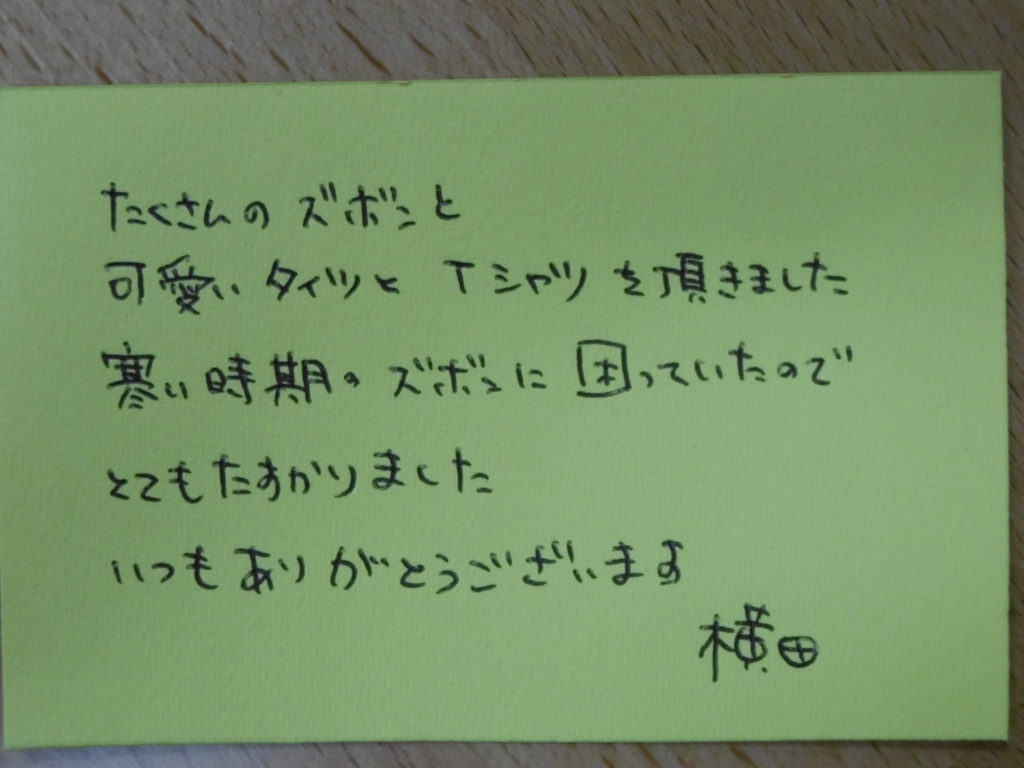 たくさんの ズボンと
可愛い タイツと Tシャツ を頂きました
寒い時期の ズボンに 困っていたので
とてもたすかりました
いつもありがとうございます
横田